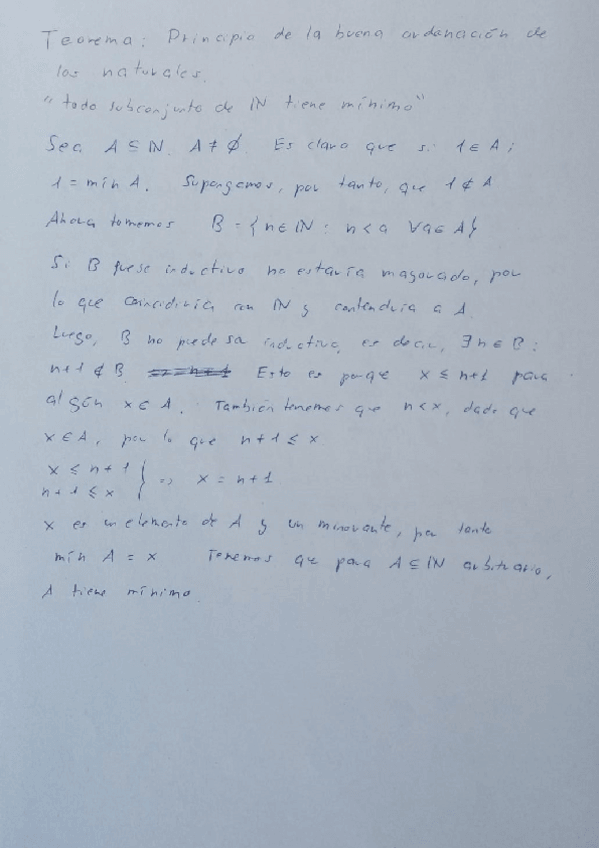 Teorema: Principio de la buena ordenación de
los naturales.
"todo subconjunto de ℕ tiene mínimo"
Sea A ⊆ ℕ, A ≠ ∅. Es claro que si 1 ∈ A;
1 = min A. Supongamos, por tanto, que 1 ∉ A
Ahora tomemos B = {n ∈ ℕ : n < a ∀a ∈ A}
Si B fuese inductivo no estaría mayorado, por
lo que coincidiría con ℕ y contendría a A.
Luego, B no puede ser inductivo, es decir, ∃ n ∈ B :
n+1 ∉ B. Esto es porque x ≤ n+1 para
algún x ∈ A. También tenemos que n < x, dado que
x ∈ A, por lo que n+1 ≤ x
x ≤ n+1
n+1 ≤ x } => x = n+1
x es un elemento de A y un minorante, por tanto
min A = x Tenemos que para A ⊆ ℕ arbitrario,
A tiene mínimo.